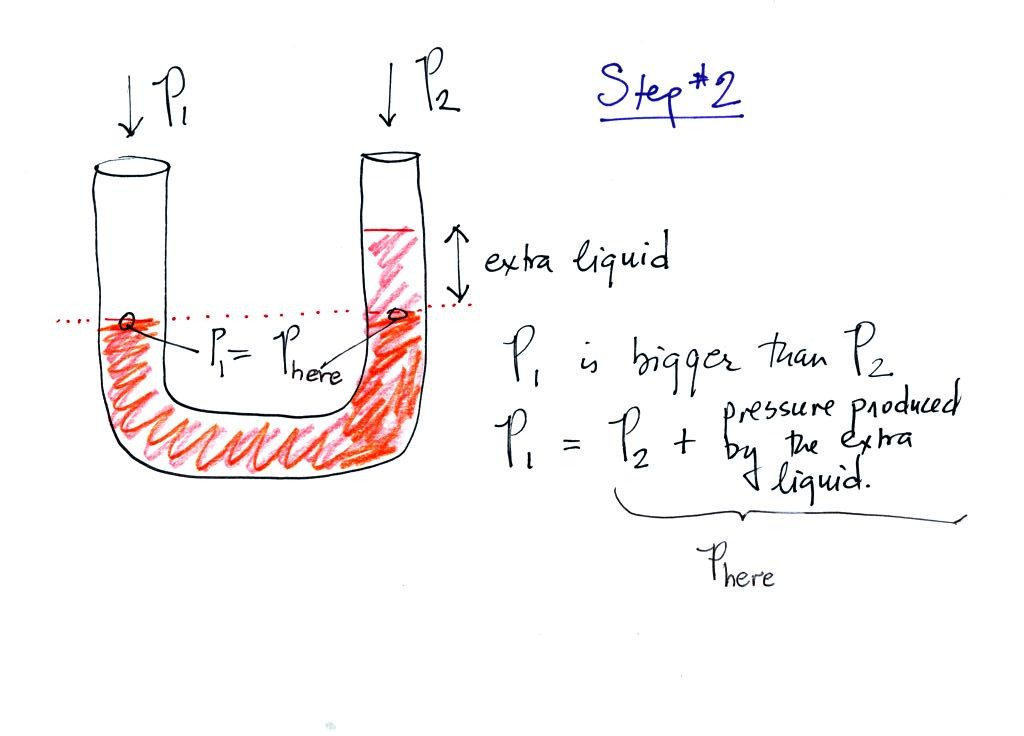 P1
P2
Step #2
extra liquid
P1 = Phere
P1 is bigger than P2
P1 = P2 + pressure produced
by the extra
liquid.
Phere